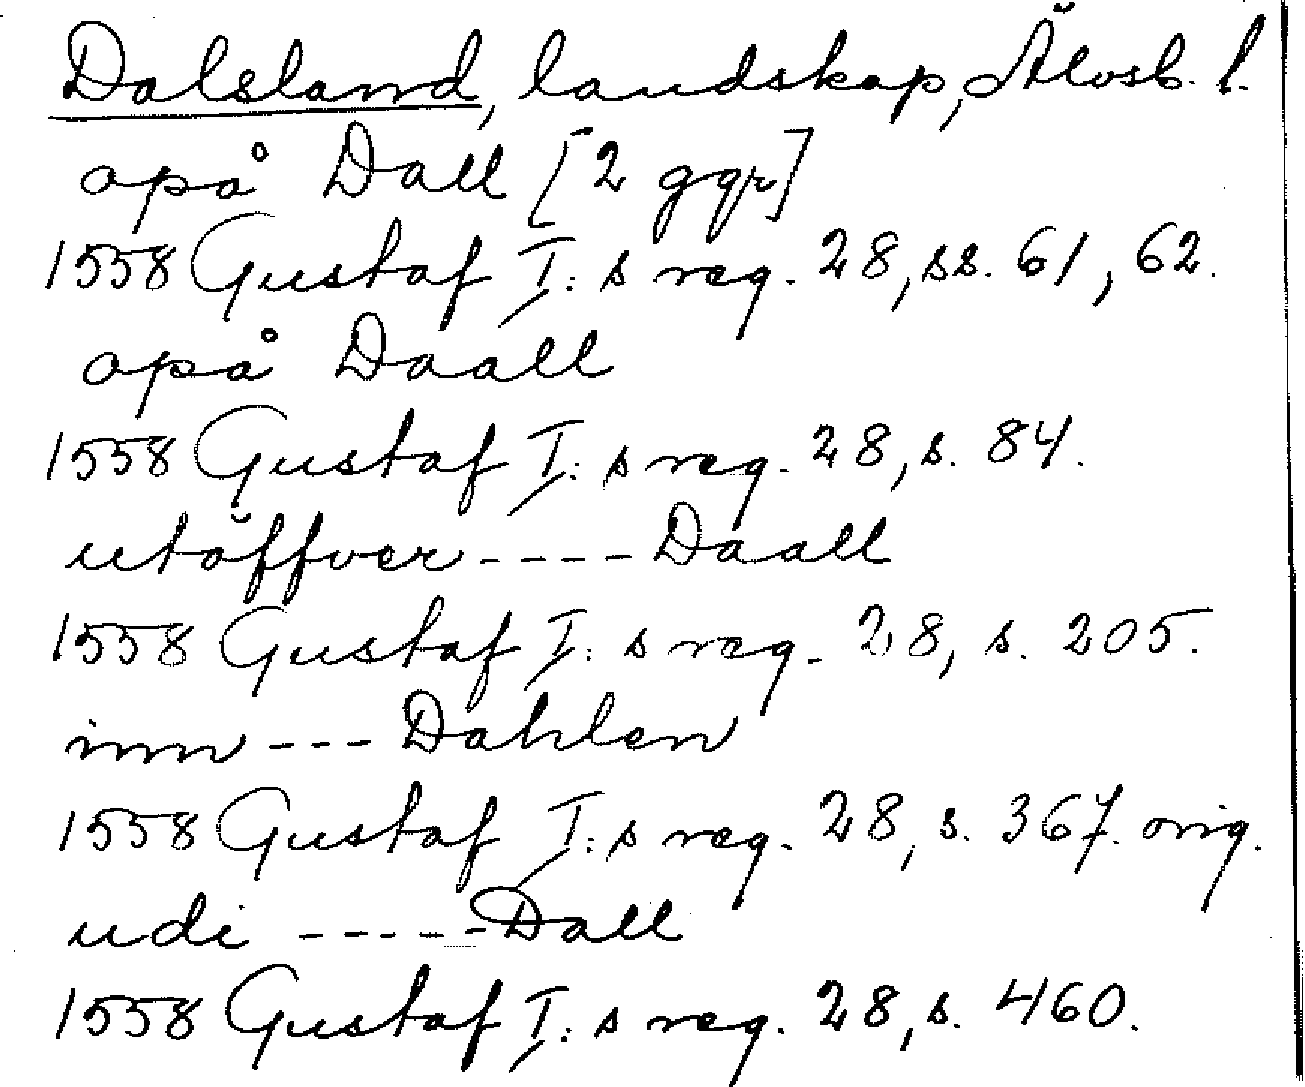 Dalsland, landskap, Älvsb. l.
opå Dall [2 ggr]
1558 Gustaf I:s reg. 28, ss. 61, 62.
opå Daall
1558 Gustaf I:s reg. 28, s. 84.
utöffver ---- Daall
1558 Gustaf I:s reg. 28, s. 205.
inn --- Dahlen
1558 Gustaf I:s reg. 28, s. 367. orig.
udi ----- Dall
1558 Gustaf I:s reg. 28, s. 460.